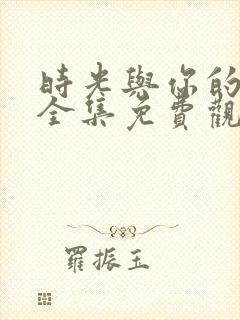 時光與你的
全集免費觀
羅振玉